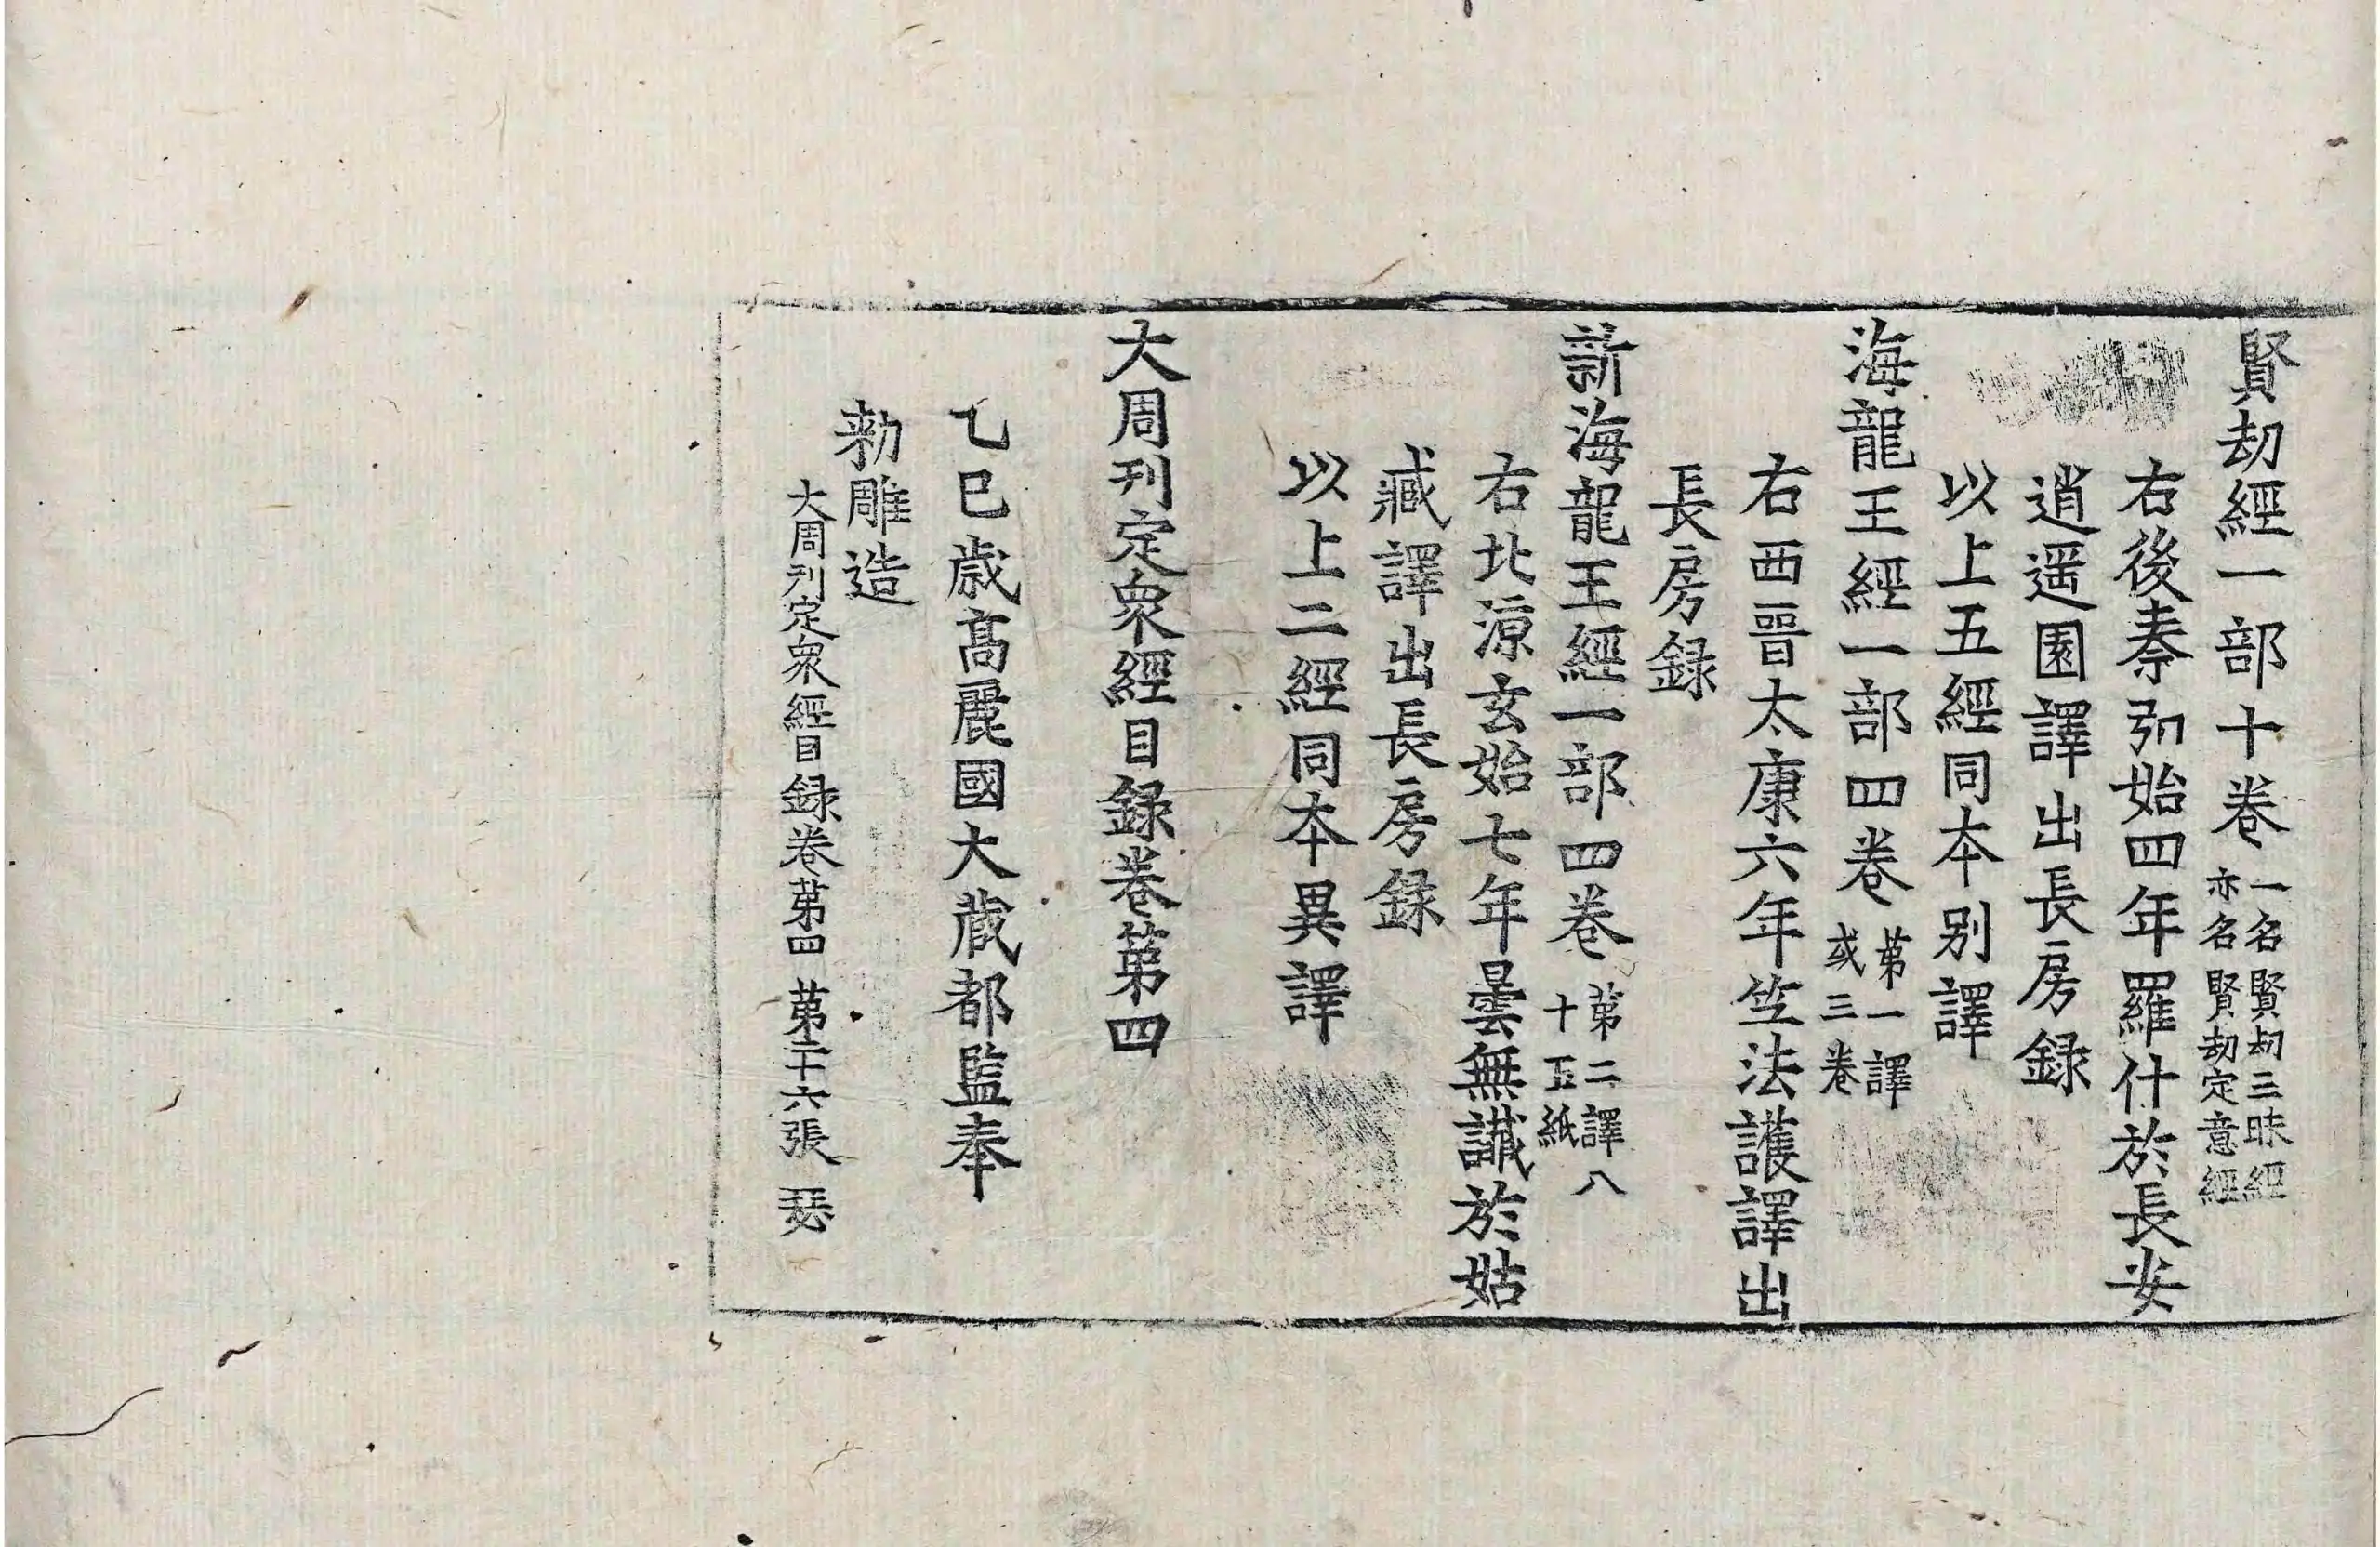 賢劫經一部十卷 一名賢劫三昧經 亦名賢劫定意經
右後秦弘始四年羅什於長安
逍遥園譯出長房録
以上五經同本别譯
海龍王經一部四卷 第一譯 或三卷
右西晉太康六年竺法護譯出
長房録
新海龍王經一部四卷 第二譯八 十五紙
右北涼玄始七年曇無讖於姑
臧譯出長房録
以上二經同本異譯
大周刊定衆經目録卷第四
乙巳歳髙麗國大藏都監奉
勅雕造
大周刊定衆經目録卷第四 第二十六張 瑟